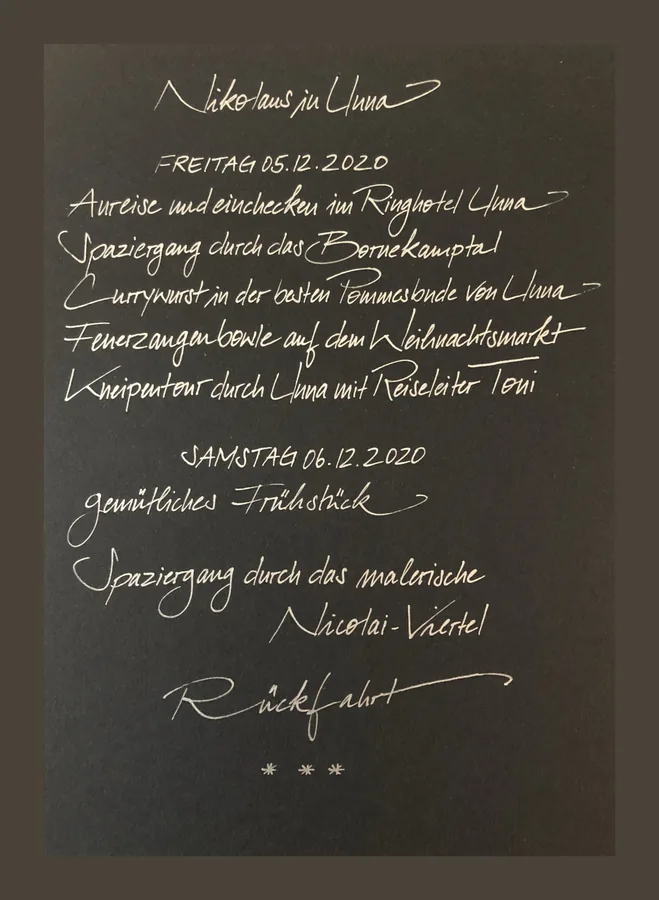 Nikolaus in Unna
FREITAG 05.12.2020
Anreise und einchecken im Ringhotel Unna
Spaziergang durch das Bornekamptal
Currywurst in der besten Pommesbude von Unna
Feuerzangenbowle auf dem Weihnachtsmarkt
Kneipentour durch Unna mit Reiseleiter Toni
SAMSTAG 06.12.2020
gemütliches Frühstück
Spaziergang durch das malerische
Nicolai-Viertel
Rückfahrt
* * *